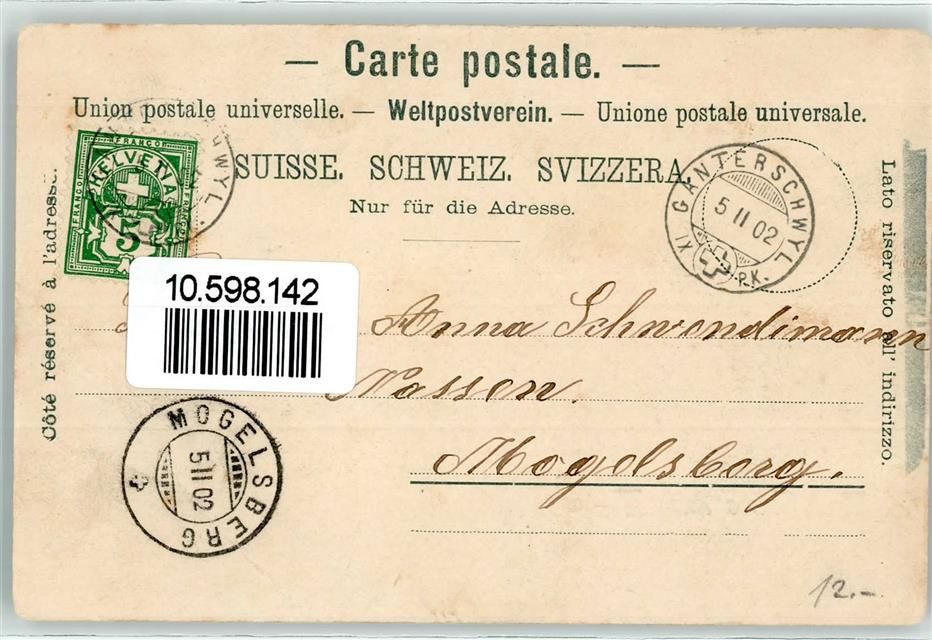 — Carte postale. —
Union postale universelle. — Weltpostverein. — Unione postale universale.
SUISSE. SCHWEIZ. SVIZZERA.
Nur für die Adresse.
Côté réservé à l'adresse.
Lato riservato all' indirizzo.
FRANCO
HELVETIA
FRANCO
5
GANTERSCHWYL
5 II 02
XI
P.K.
10.598.142
Anna Schwendimann
Nassen.
Mogelsberg.
MOGELSBERG
5 II 02
12.-